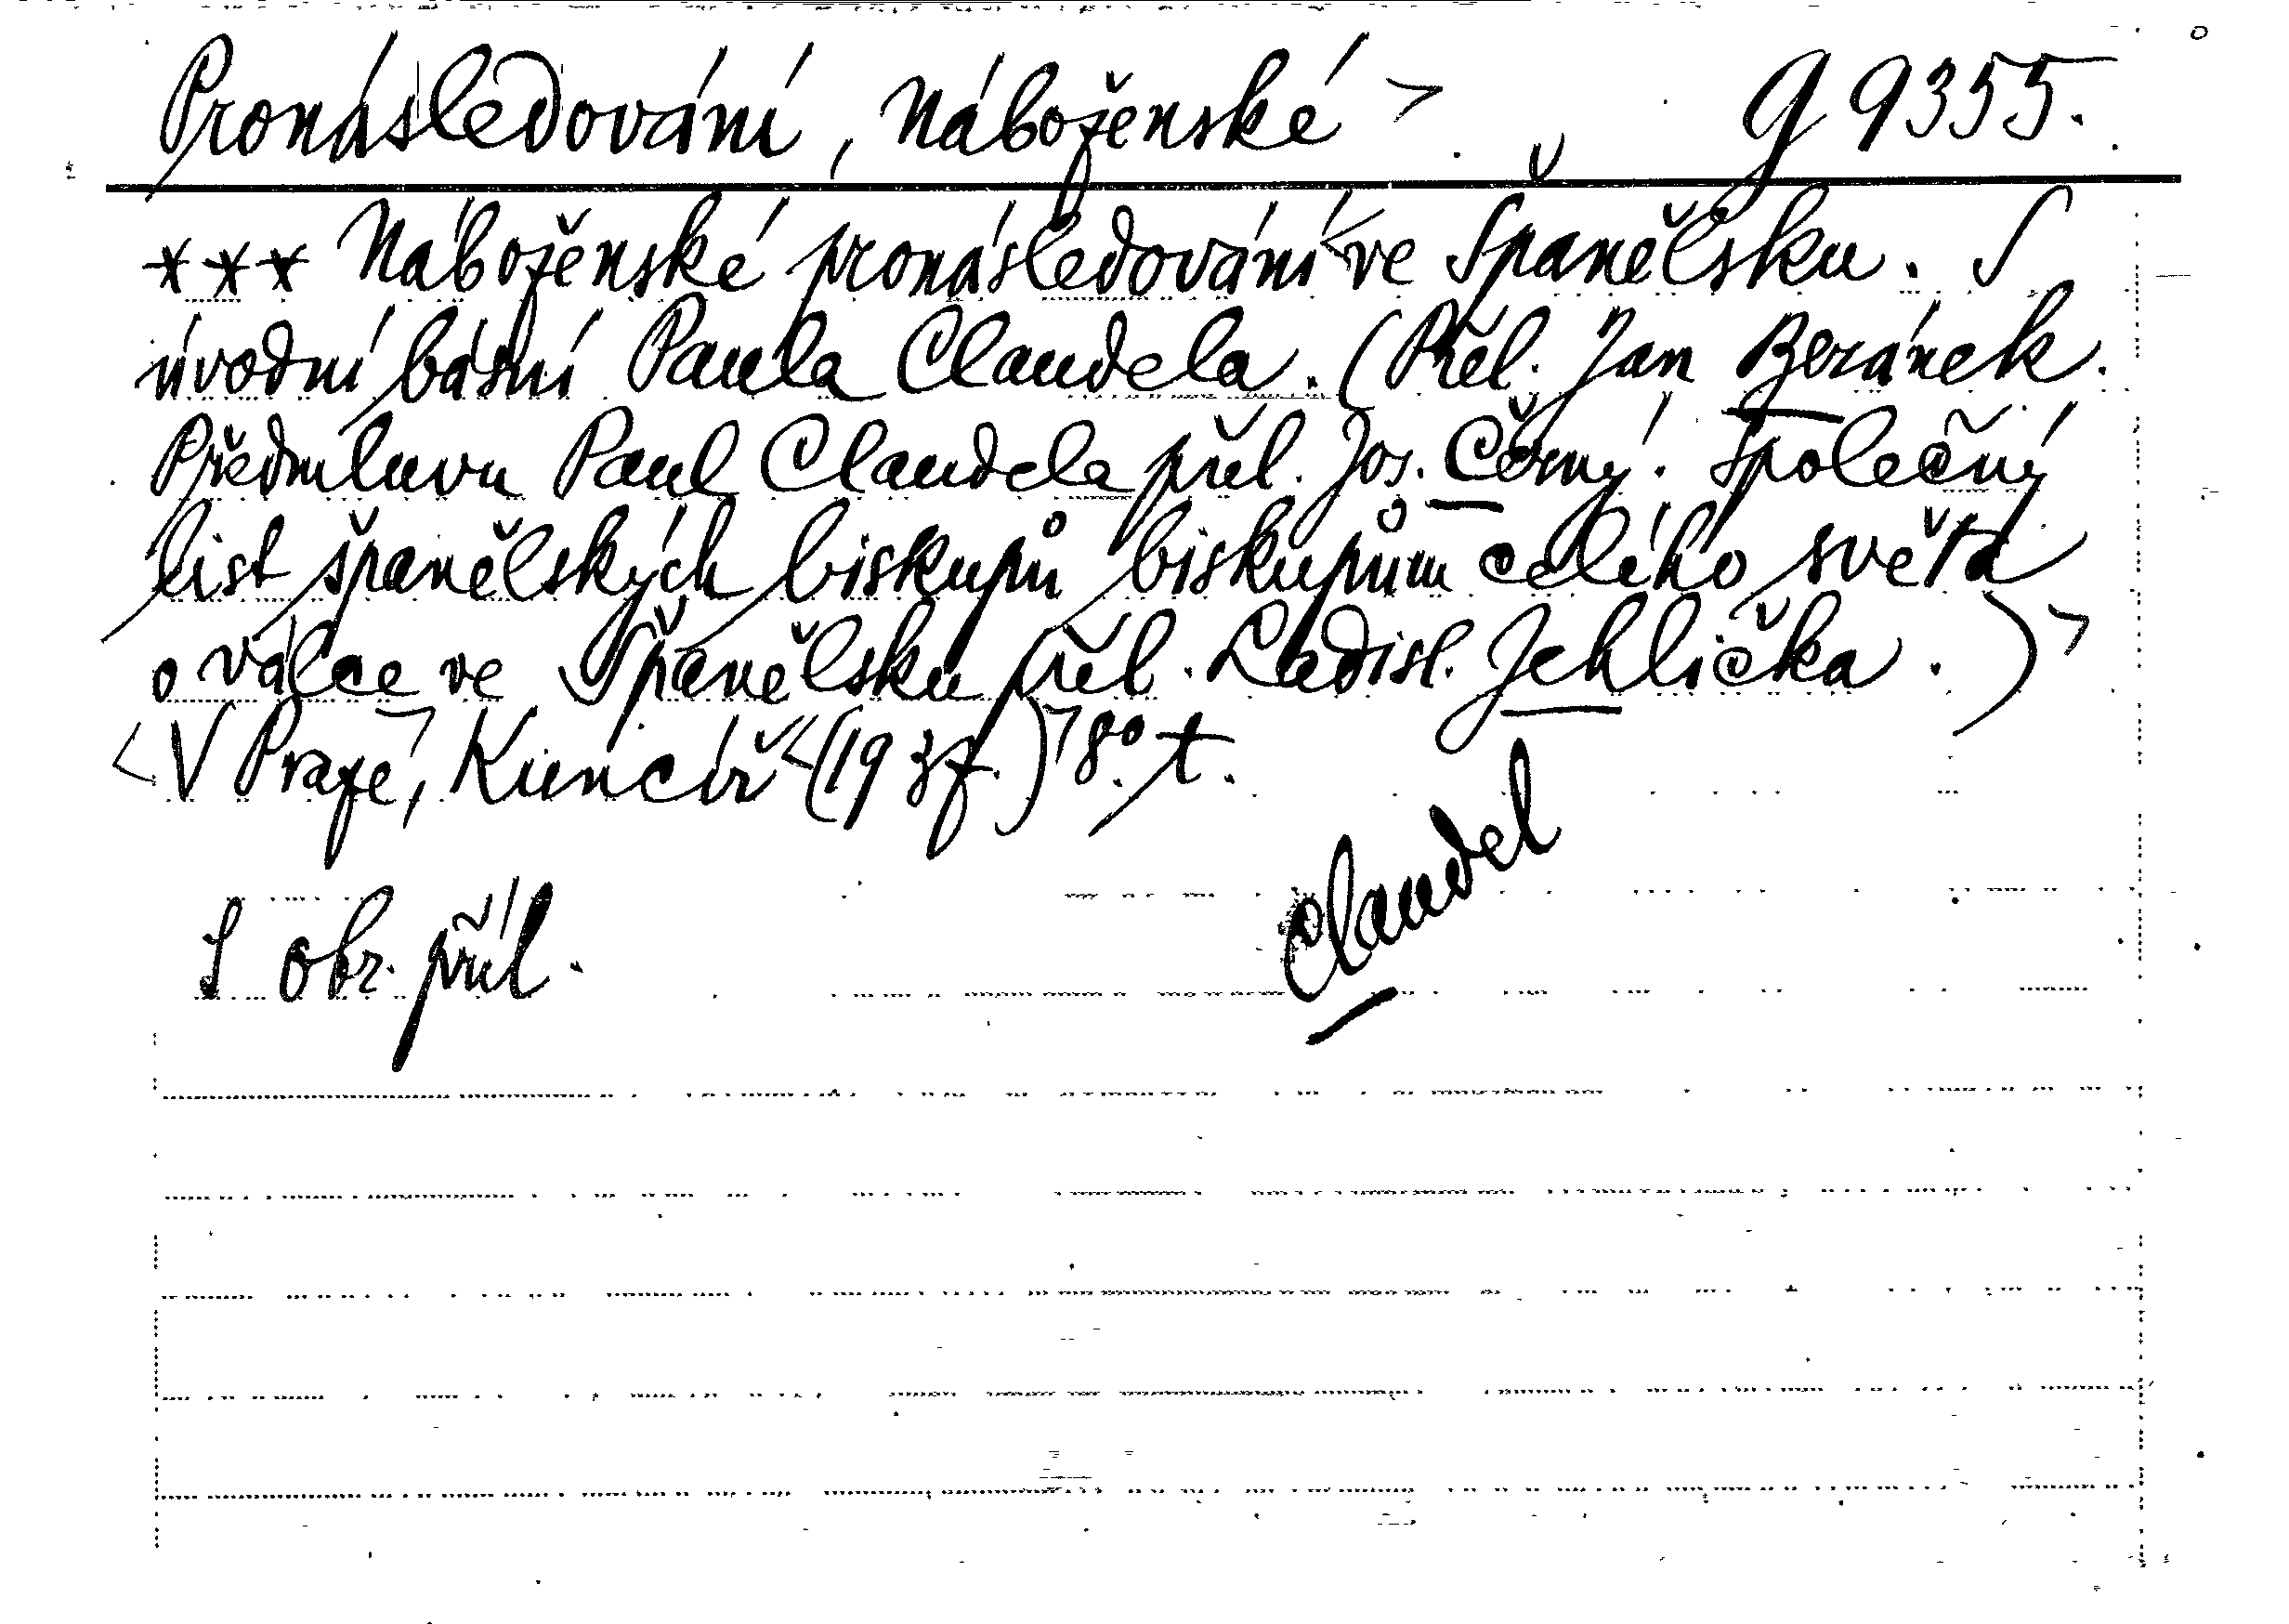 Pronásledování, Náboženské > G 9355.
*** Náboženské pronásledování < ve Španělsku. S
úvodní básní Paula Claudela. (Přel. Jan Beránek.
Předmluvu Paul Claudela přel. Jos. Černý. Společný
list španělských biskupů biskupům celého světa
o válce ve Španělsku přel. Ladisl. Jehlička.) >
< V Praze >, Kuncíř < (1937.) > 8°. t.
Claudel
S obr. příl.